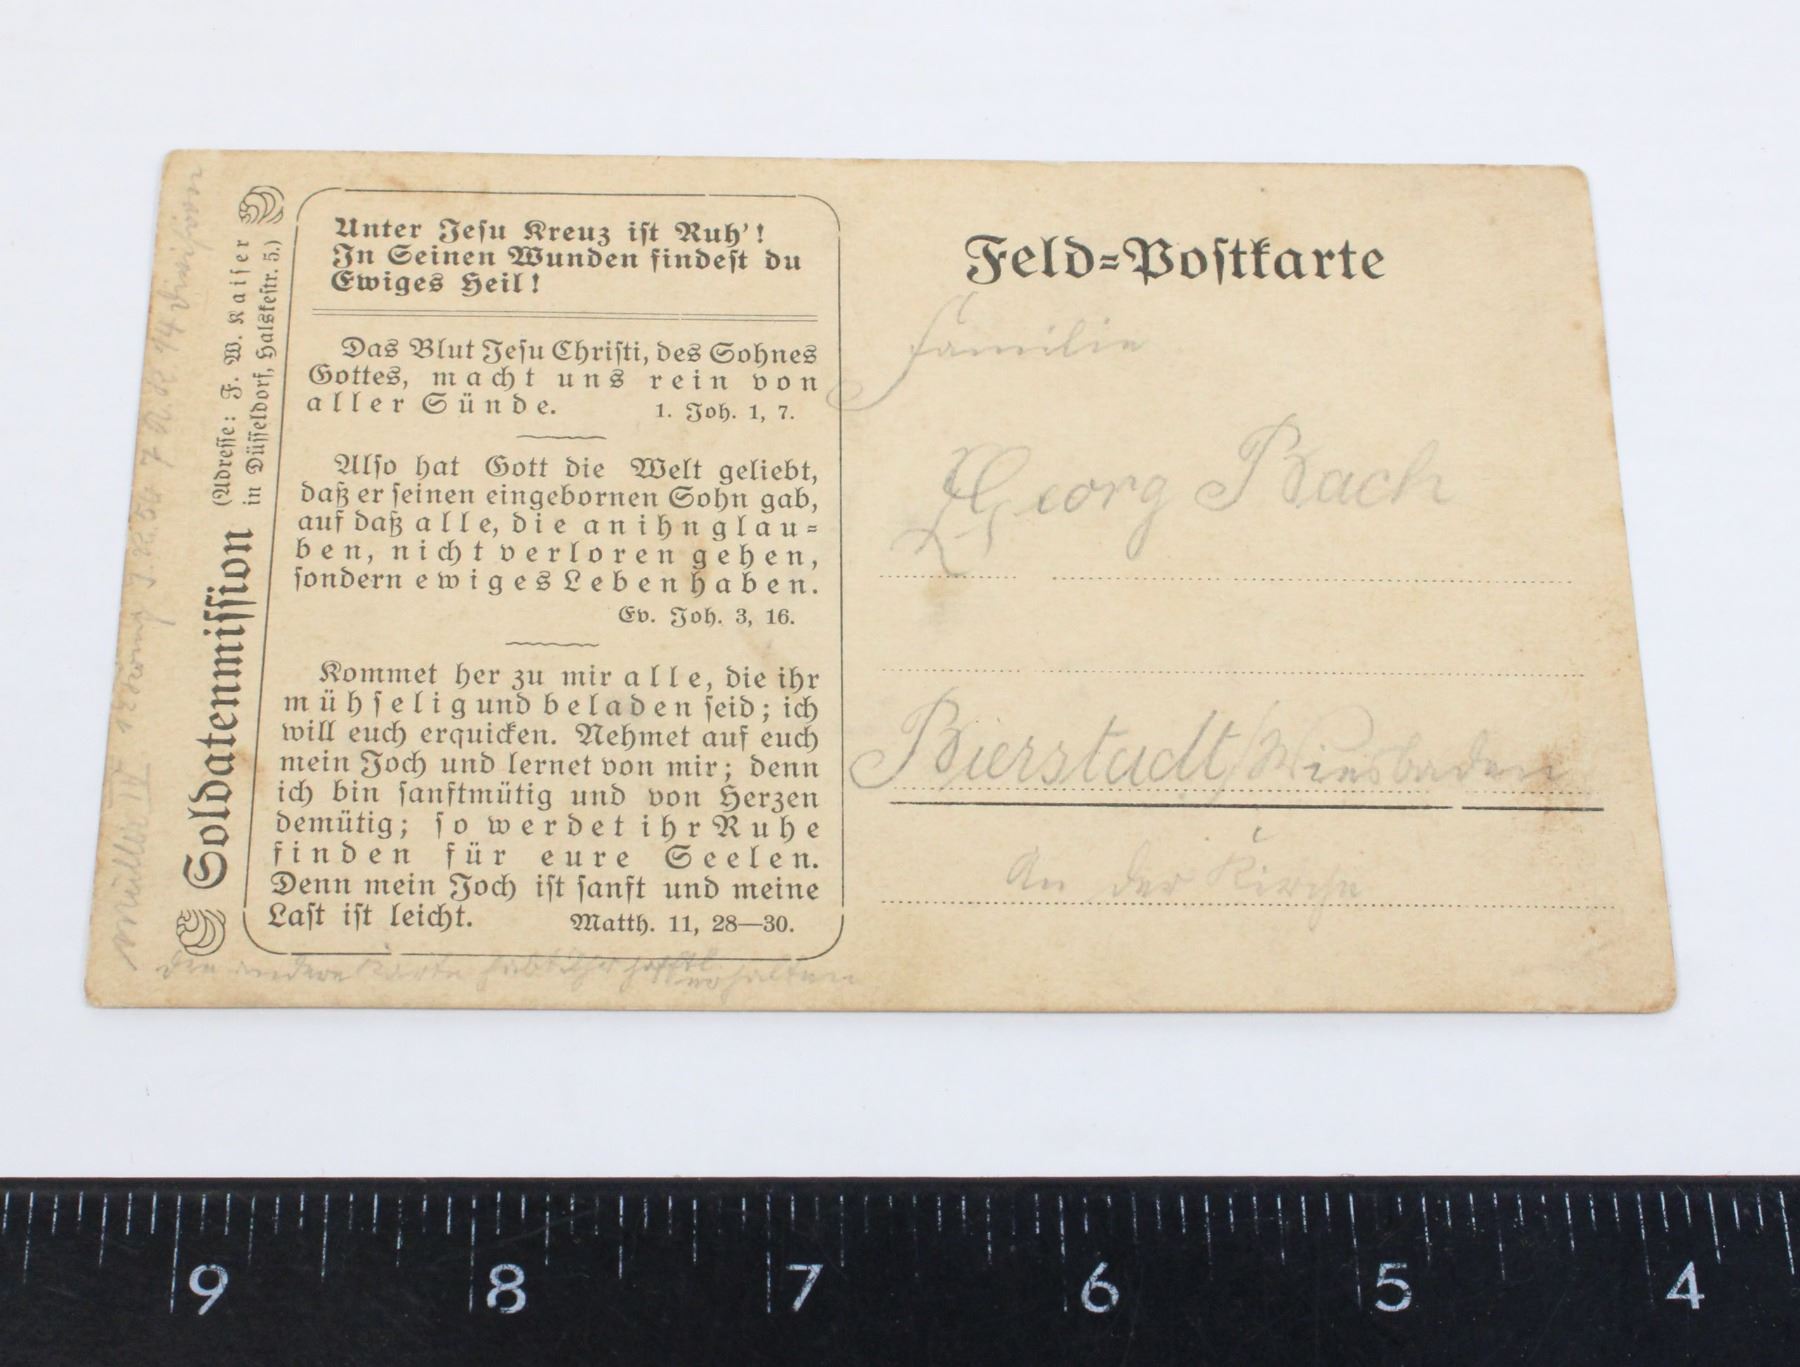 Soldatenmission
(Adresse: F. W. Kaiser
in Düsseldorf, Halskestr. 5.)
Unter Jesu Kreuz ist Ruh'!
In Seinen Wunden findest du
Ewiges Heil!
Das Blut Jesu Christi, des Sohnes
Gottes, macht uns rein von
aller Sünde. 1. Joh. 1, 7.
Also hat Gott die Welt geliebt,
daß er seinen eingebornen Sohn gab,
auf daß alle, die an ihn glau=
ben, nicht verloren gehen,
sondern ewiges Leben haben.
Ev. Joh. 3, 16.
Kommet her zu mir alle, die ihr
mühselig und beladen seid; ich
will euch erquicken. Nehmet auf euch
mein Joch und lernet von mir; denn
ich bin sanftmütig und von Herzen
demütig; so werdet ihr Ruhe
finden für eure Seelen.
Denn mein Joch ist sanft und meine
Last ist leicht. Matth. 11, 28—30.
Die andere Karte habt ihr erhalten
Müller IV
Feld=Postkarte
Familie
Georg Bach
Bierstadt/Wiesbaden
An der Kirche
9 8 7 6 5 4